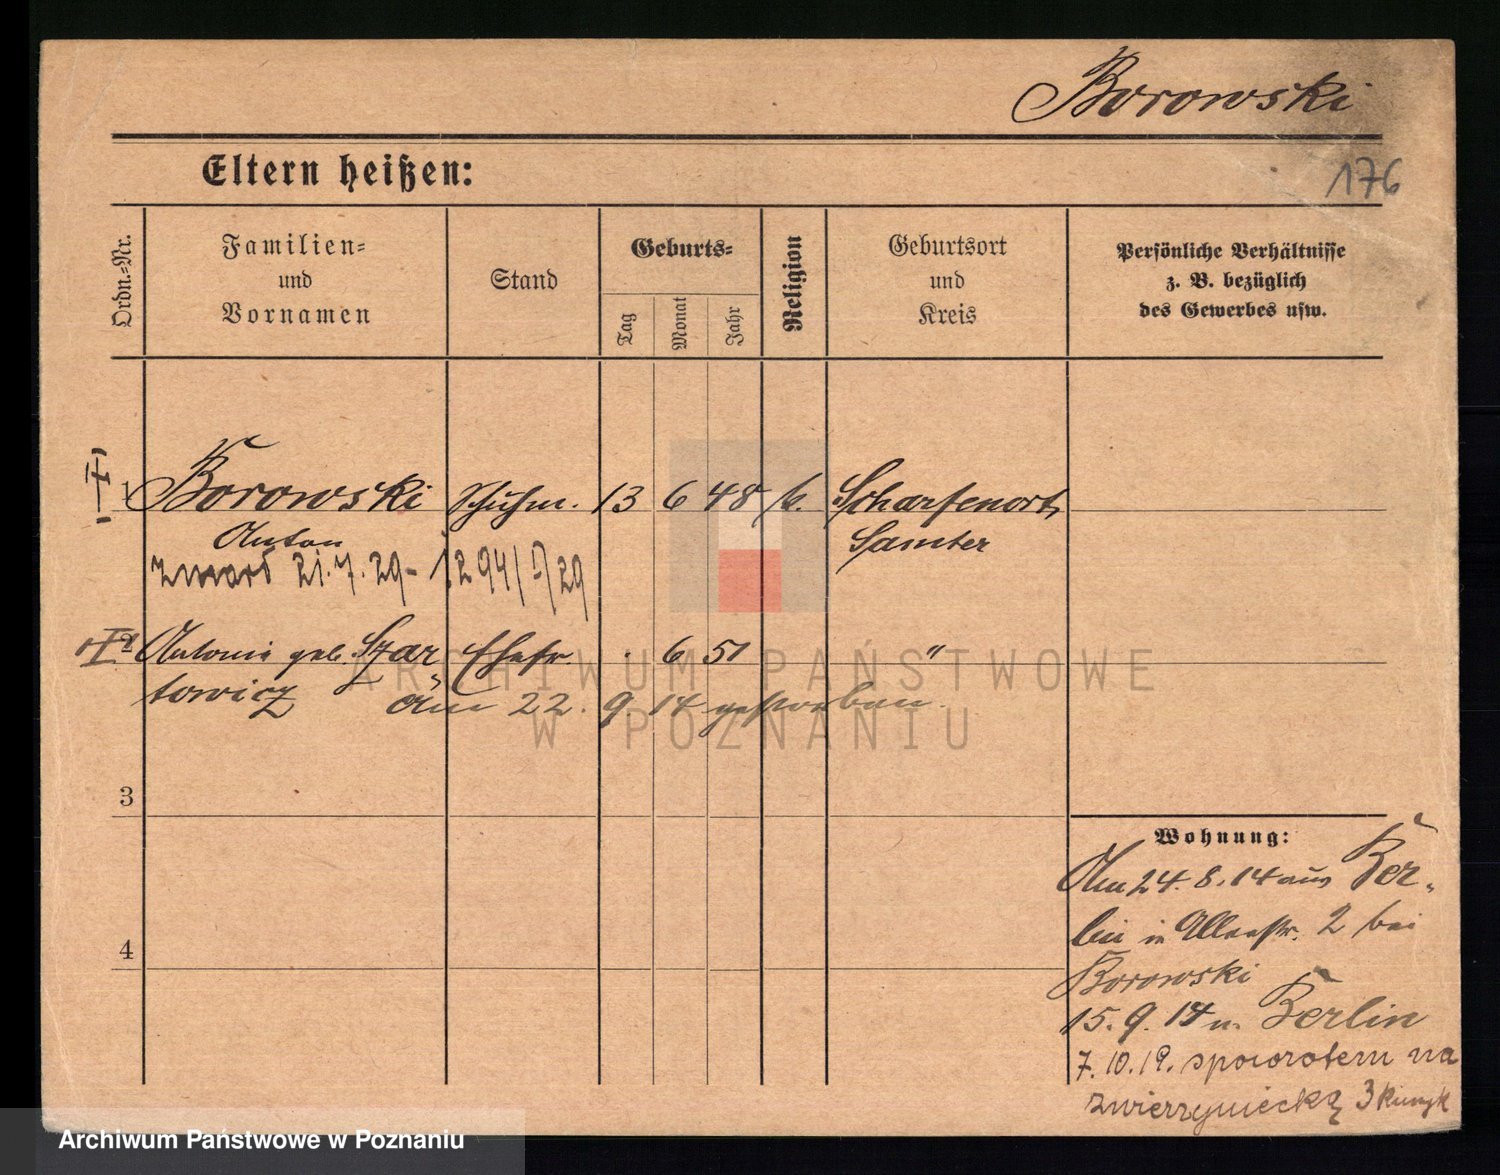 Borowski
176
Eltern heißen:
Ordn.-Nr.
Familien-
und
Vornamen
Stand
Geburts-
Tag
Monat
Jahr
Religion
Geburtsort
und
Kreis
Persönliche Verhältnisse
z. B. bezüglich
des Gewerbes usw.
1 Borowski Schuhm. 13 6 48 k. Scharfenort,
Anton Samter
zmarł 21.7.29 - 1294/I/29
2 Antonie geb. Szar Ehefr. . 6 51 "
towicz
am 22. 9. 14 gestorben.
3
4
Wohnung:
Am 24. 8. 14 aus Ber-
lin in Allerstr. 2 bei
Borowski
15. 9. 14 n. Berlin
7. 10. 19. spowrotem na
zwierzyniecką 3
ARCHIWUM PAŃSTWOWE
W POZNANIU
Archiwum Państwowe w Poznaniu